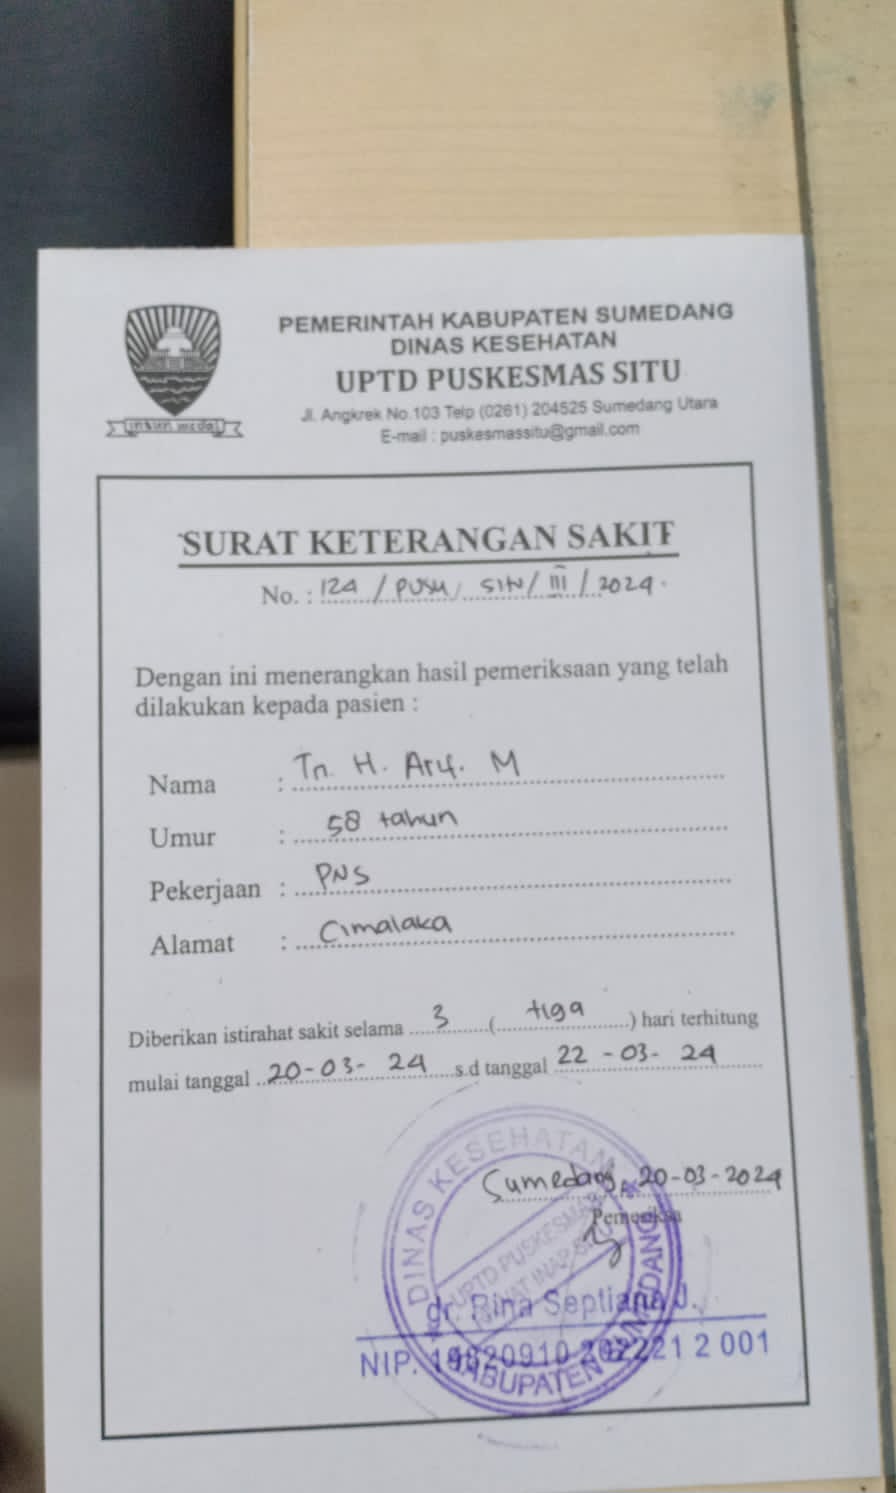 PEMERINTAH KABUPATEN SUMEDANG
DINAS KESEHATAN
UPTD PUSKESMAS SITU
Jl. Angkrek No.103 Telp (0261) 204525 Sumedang Utara
E-mail : puskesmassitu@gmail.com
insun medal
SURAT KETERANGAN SAKIT
No. : 124 / PUSM / SIN / III / 2024.
Dengan ini menerangkan hasil pemeriksaan yang telah
dilakukan kepada pasien :
Nama : Tn. H. Arif. M
Umur : 58 tahun
Pekerjaan : PNS
Alamat : Cimalaka
Diberikan istirahat sakit selama 3 ( tiga ) hari terhitung
mulai tanggal 20-03-24 s.d tanggal 22-03-24
Sumedang, 20-03-2024
Pemeriksa
DINAS KESEHATAN
UPTD PUSKESMAS
RAWAT INAP SITU
KABUPATEN SUMEDANG
dr. Rina Septiana J.
NIP. 2 001